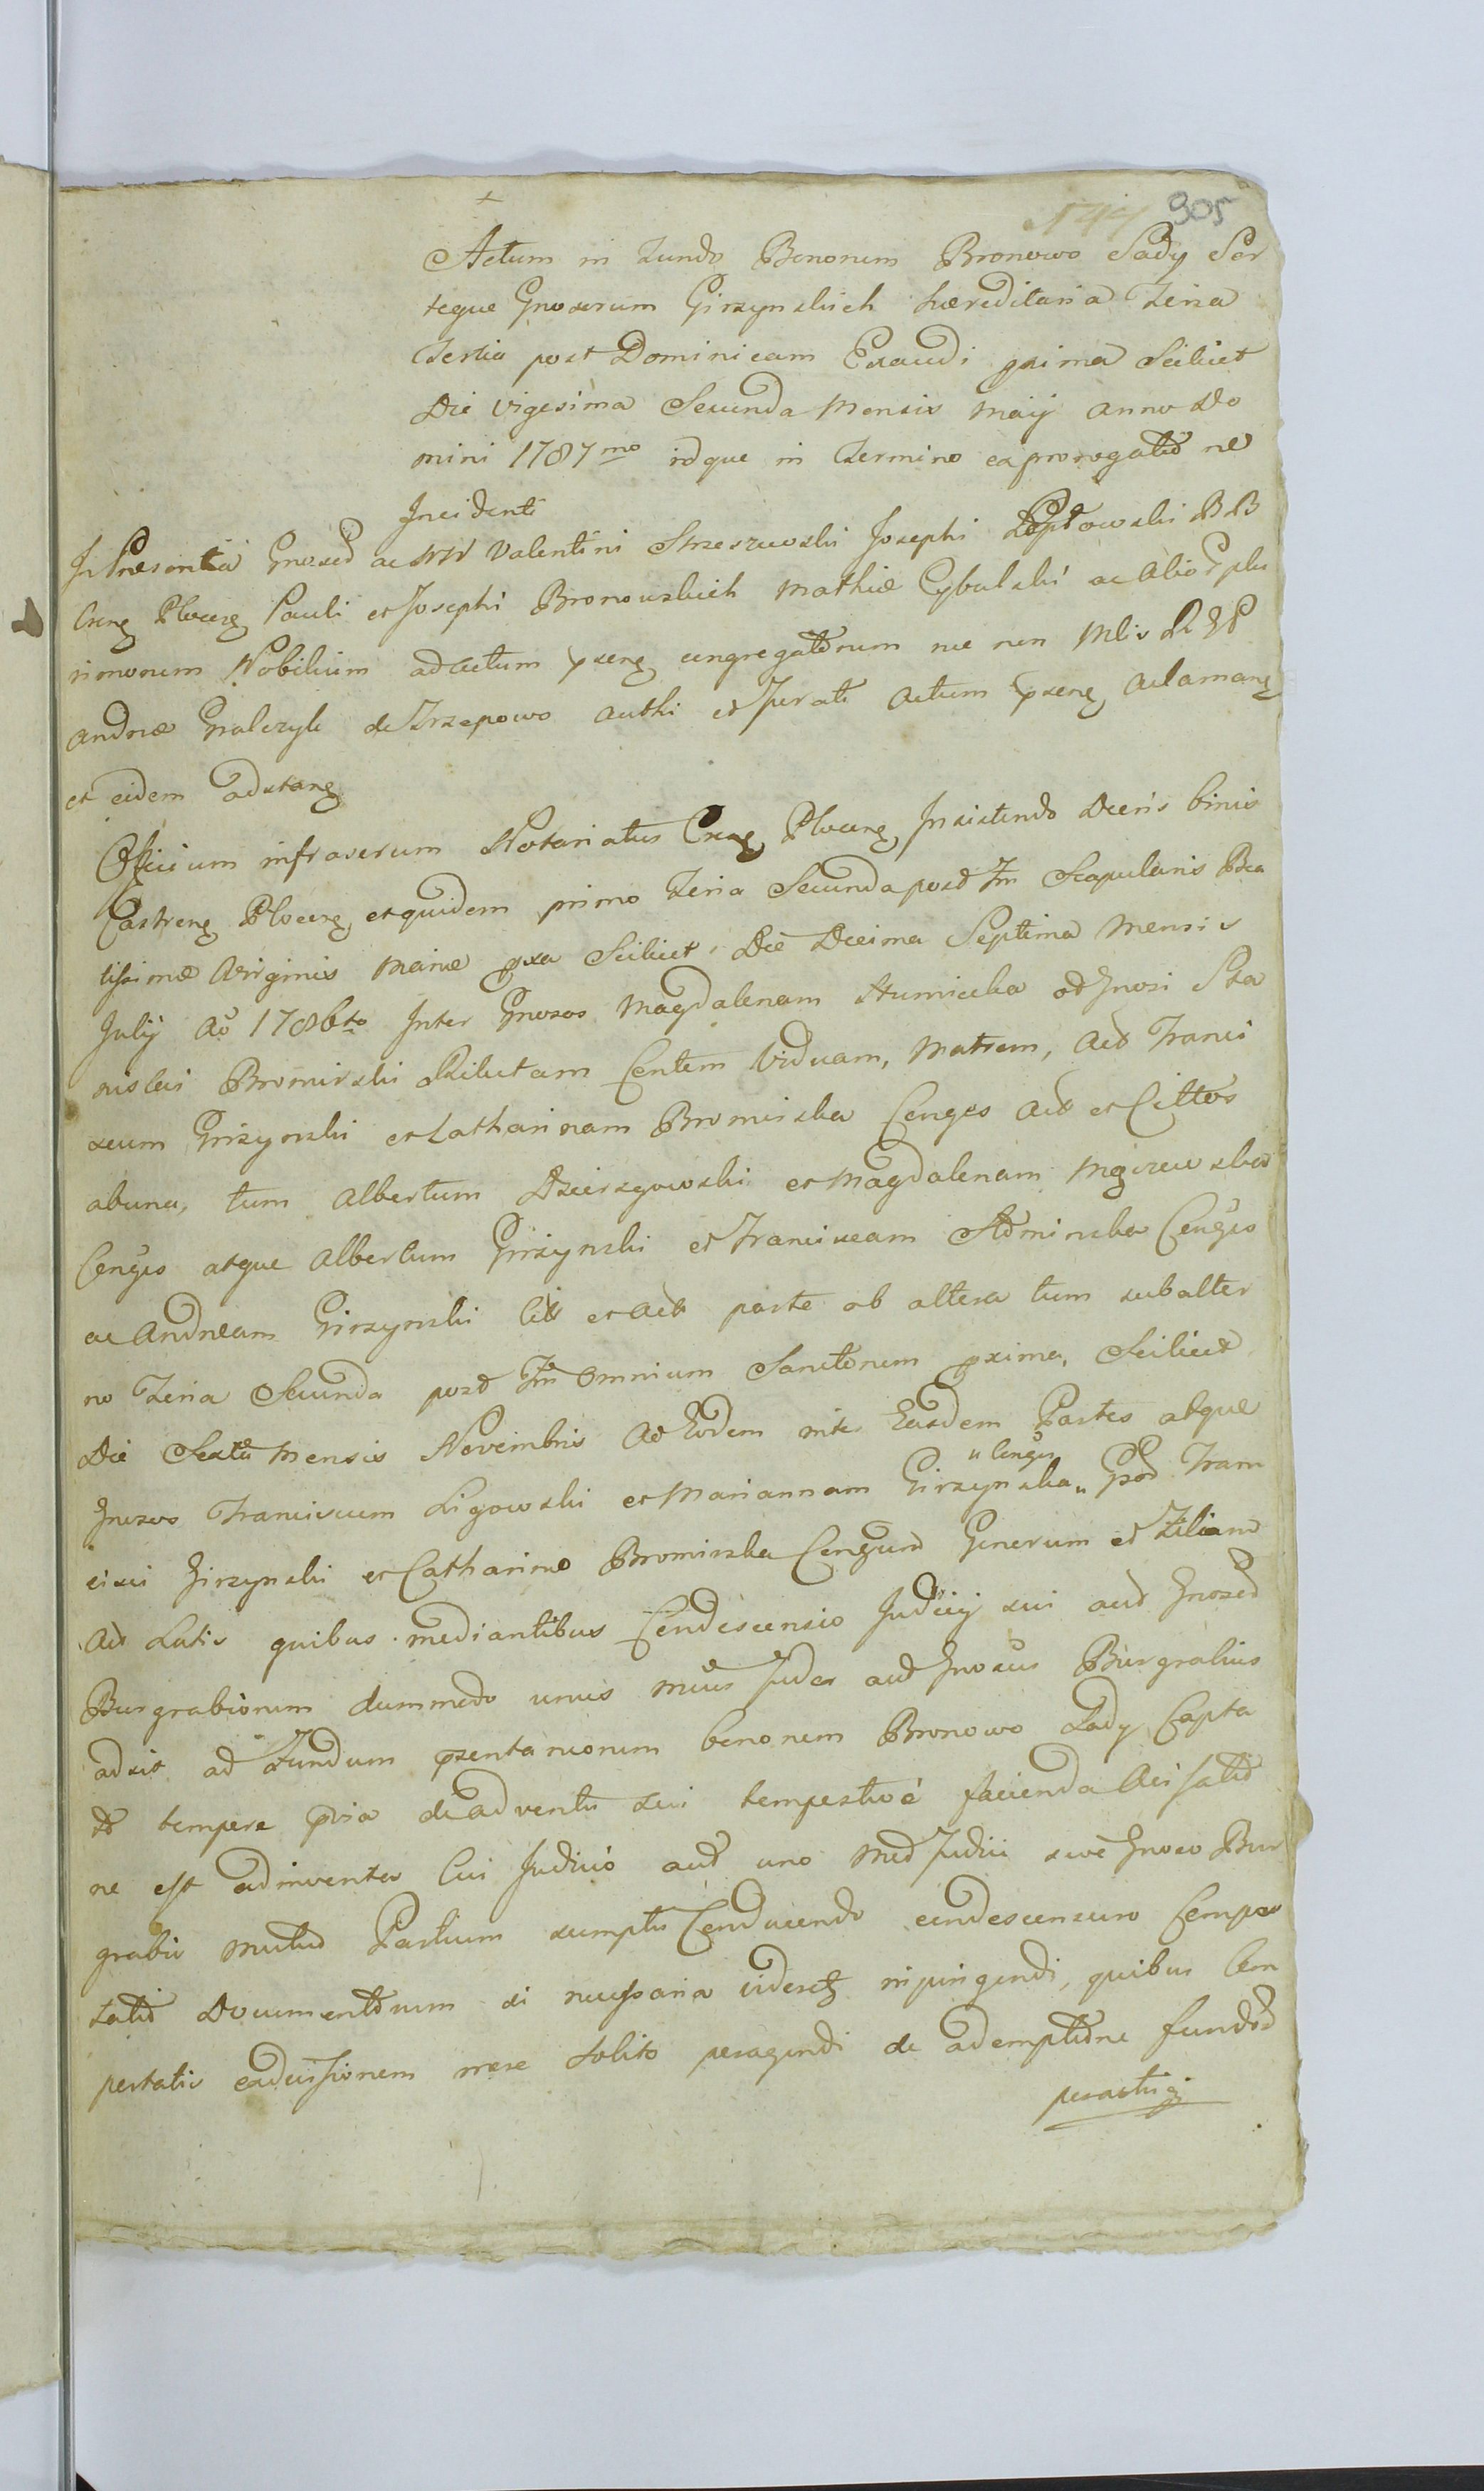 905
Actum in Fundo Bonorum Bronowo Sady Sor
teque Gnosorum Girzynskich haereditaria Feria
Tertia post Dominicam Exaudi pxima Scilicet
Die vigesima Secunda Mensis Maij Anno Do
mini 1787mo idque in Termino ex prorogatne
Incidenti
In Praesentia Gnosor ac NN Valentini Strzeszewski Josephi BB
Csrng Plocens Pauli et Josephi Bronowskich Mathiae Cybulski ac Alior plu
rimorum Nobilium ad actum pseng congregatorum nec non Mlis
Andreae Gralczyk de Trzepowo authi et Jurati Actum pseng aclamang
et eidem adstang
Officium infrascrum Notariatus Csrng Plocens Insistendo Decris binis
Castreng Plocens, et quidem primo Feria Secunda post Fm Scapularis Bea
tissimae Virginis Mariae pxa Scilicet, Die Decima Septima Mensis
July Ao 1786to Inter Gnosos Magdalenam Humiecka od Gnosi Sta
nislai Bromirski Relictam Contem Viduam, Matrem, Act Franci
scum Girzynski et Catharinam Bromirska Conges Act et Cittos
abuna, tum Albertum Dzierzgowski et Magdalenam
Conges atque Albertum Girzynski et Franciscam Conges
ac Andream Girzynski Citt et Act parte ab altera tum subalter
no Feria Secunda post Fm Omnium Sanctorum pxima, Scilicet
Die Sexta Mensis Novembris Ao Eodem inter Easdem Partes atque
Gnosos Franciscum Ligowski et Mariannam Girzynska „ Gsor Fran
„ Conges
cisci Girzynski et Catharinae Bromirska Congum Generum et Filiam
Act Latis quibus mediantibus Condescensio Judicij sui aut Gnosor
Burgrabiorum dummodo unus Mcus Judex aut Gnosus Burgrabius
adsit ad Fundum psentaneorum bonorum Bronowo Sady Capta
to tempere pvia de adventu sui tempestive facienda
ne est adinventa Cui Judicio aut uno Mco Judici sive Gnoso Bur
grabio mutuo Partium sumptu Conducendo condescensuro Compor
tatio Documentorum si necessaria videretz injungendi, quibus Com
portatis exdivisionem more solito peragendi de ademptione fundor
peractis